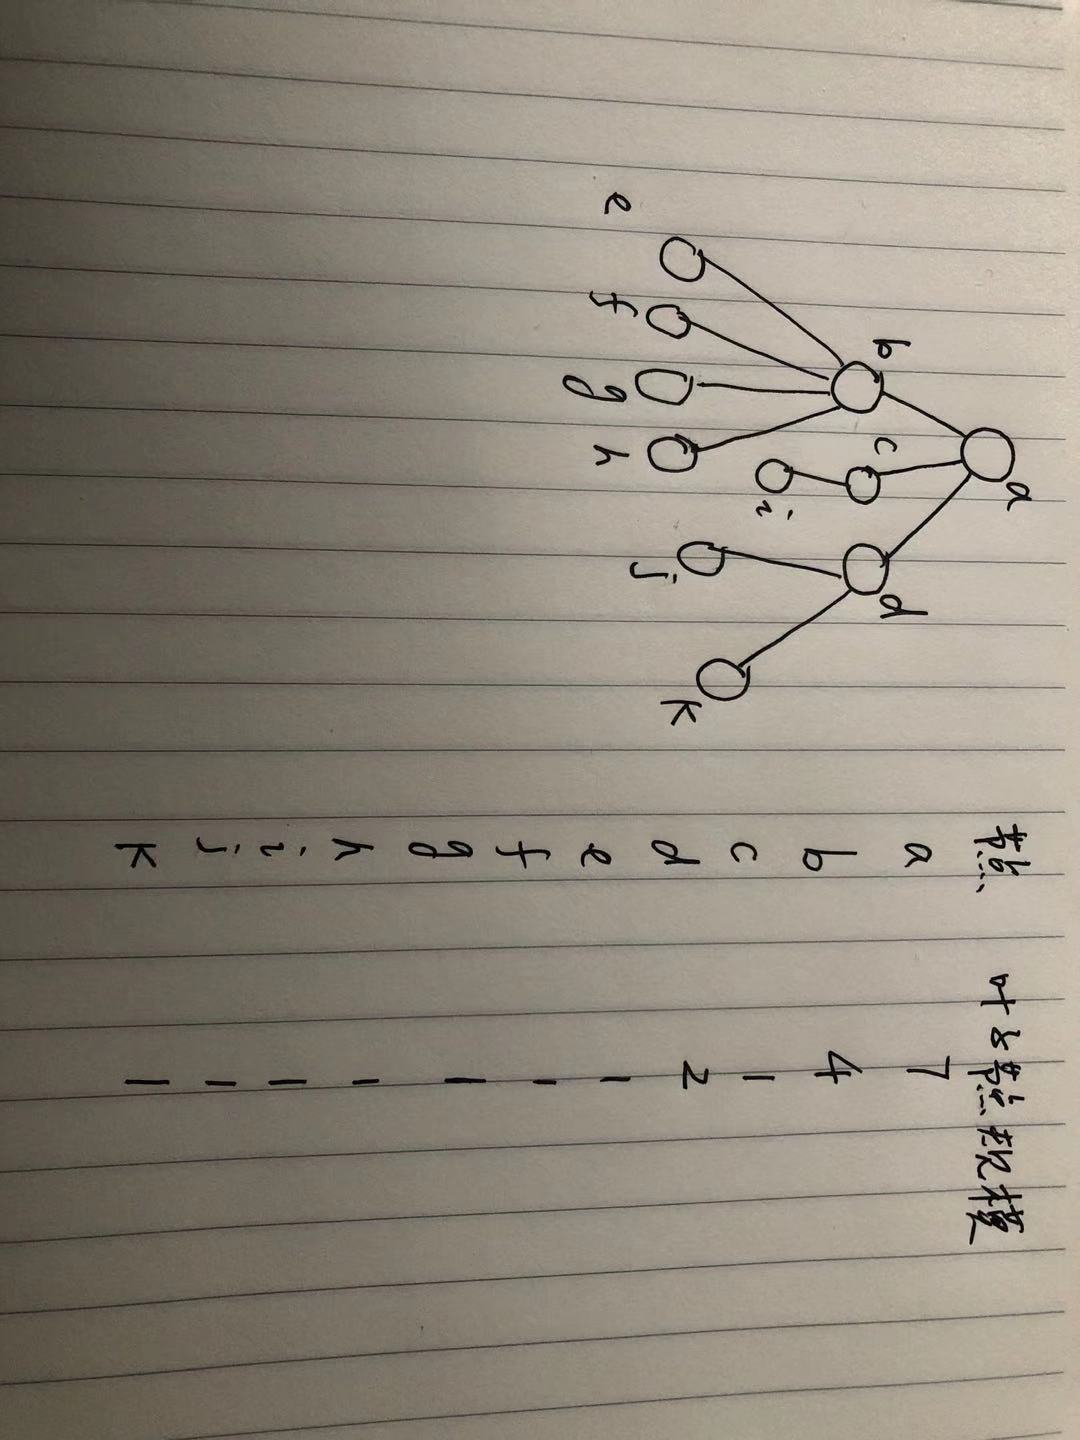 a
b
c
d
e
f
g
h
i
j
k
节点 叶子节点规模
a 7
b 4
c 1
d 2
e 1
f 1
g 1
h 1
i 1
j 1
k 1